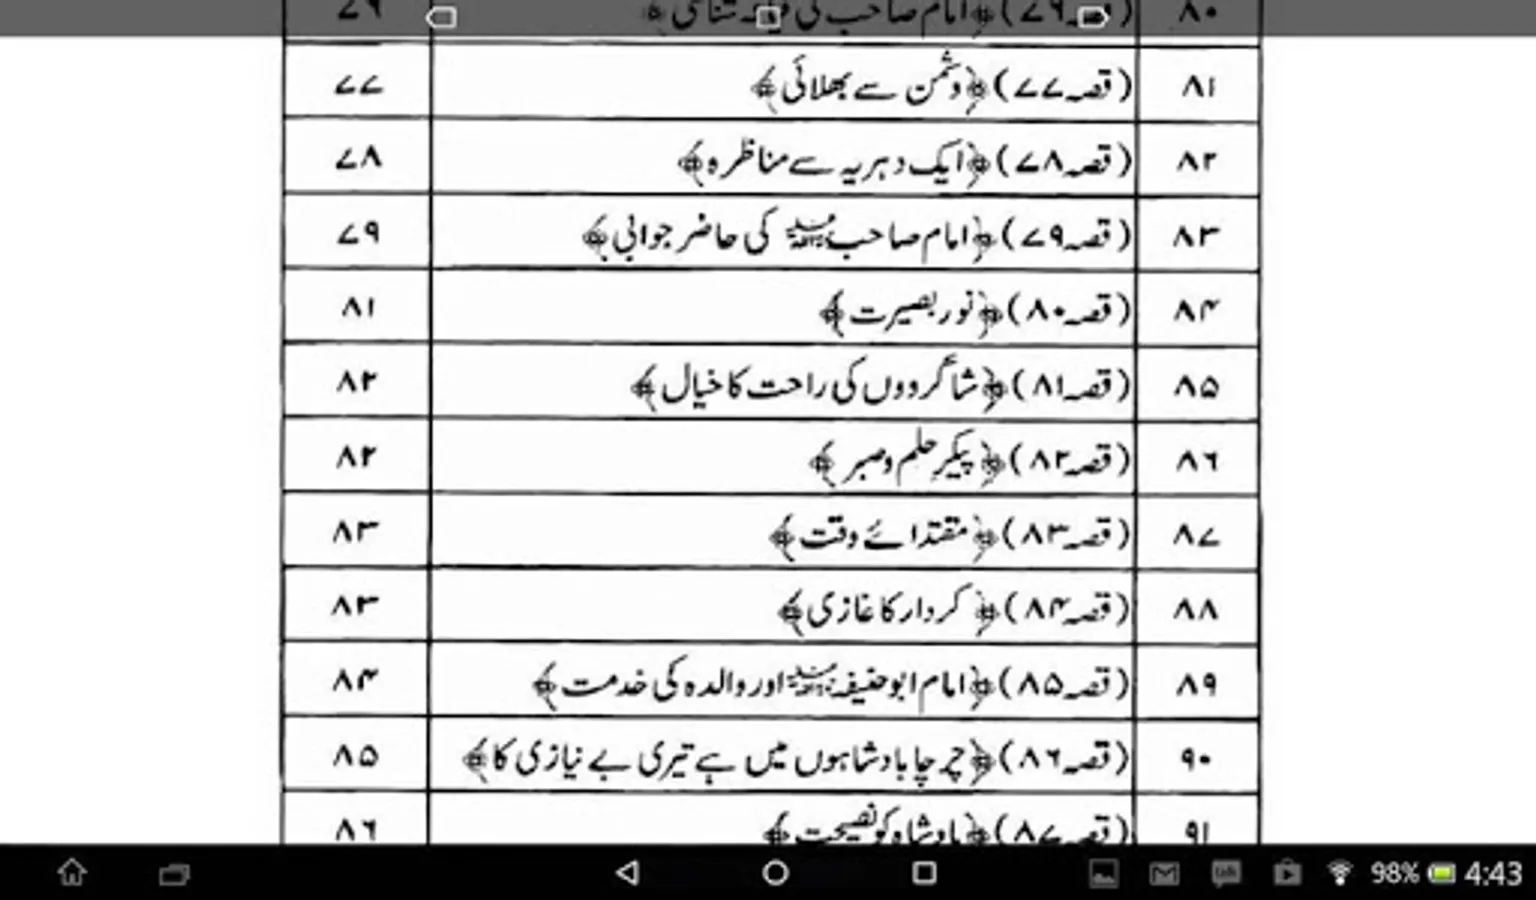 ۸۰ (قصہ۷۶) ﴿امام صاحب کی شناسی﴾ ۷۶
۸۱ (قصہ۷۷) ﴿دشمن سے بھلائی﴾ ۷۷
۸۲ (قصہ۷۸) ﴿ایک دہریہ سے مناظرہ﴾ ۷۸
۸۳ (قصہ۷۹) ﴿امام صاحبؒ کی حاضر جوابی﴾ ۷۹
۸۴ (قصہ۸۰) ﴿نور بصیرت﴾ ۸۱
۸۵ (قصہ۸۱) ﴿شاگردوں کی راحت کا خیال﴾ ۸۲
۸۶ (قصہ۸۲) ﴿پیکرِ حلم و صبر﴾ ۸۲
۸۷ (قصہ۸۳) ﴿مقتدائے وقت﴾ ۸۳
۸۸ (قصہ۸۴) ﴿کردار کا غازی﴾ ۸۳
۸۹ (قصہ۸۵) ﴿امام ابو حنیفہؒ اور والدہ کی خدمت﴾ ۸۴
۹۰ (قصہ۸۶) ﴿چرچا بادشاہوں میں ہے تیری بے نیازی کا﴾ ۸۵
۹۱ (قصہ۸۷) ﴿بادشاہ کو نصیحت﴾ ۸۶
98% 4:43